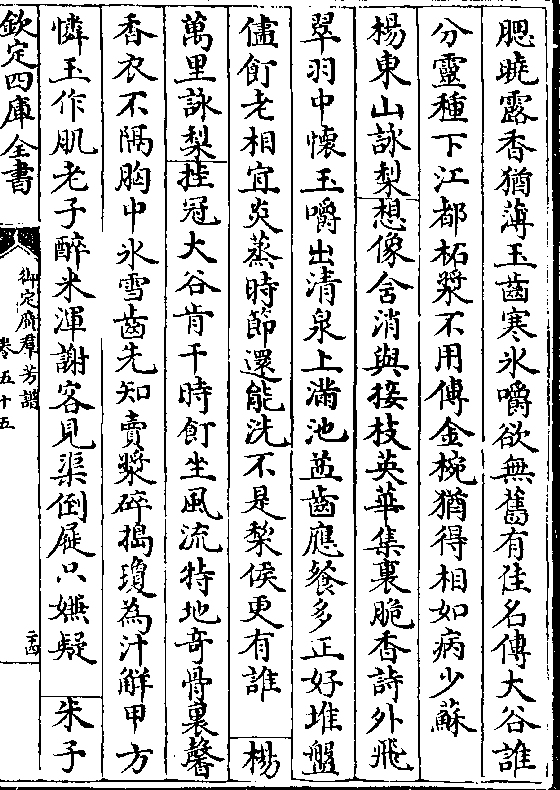 腮曉露香猶薄玉齒寒氷嚼欲無舊有佳名傳大谷誰
分靈種下江都柘漿不用傳金椀猶得相如病少蘇
楊東山詠梨想像含消與接枝英華集裏脆香詩外飛
翠羽中懷玉嚼出清泉上滿池茁齒應餐多正好堆盤
儘飣老相宜炎蒸時節還能洗不是梨侯更有誰　楊
萬里詠梨挂冠大谷肯干時飣坐風流特地奇骨裏馨
香衣不隔胸中氷雪齒先知賣漿碎搗瓊為汁解甲方
憐玉作肌老子醉來渾謝客見渠倒屣只嫌疑　朱子
欽定四庫全書
御定廣羣芳譜
卷五十五
二四